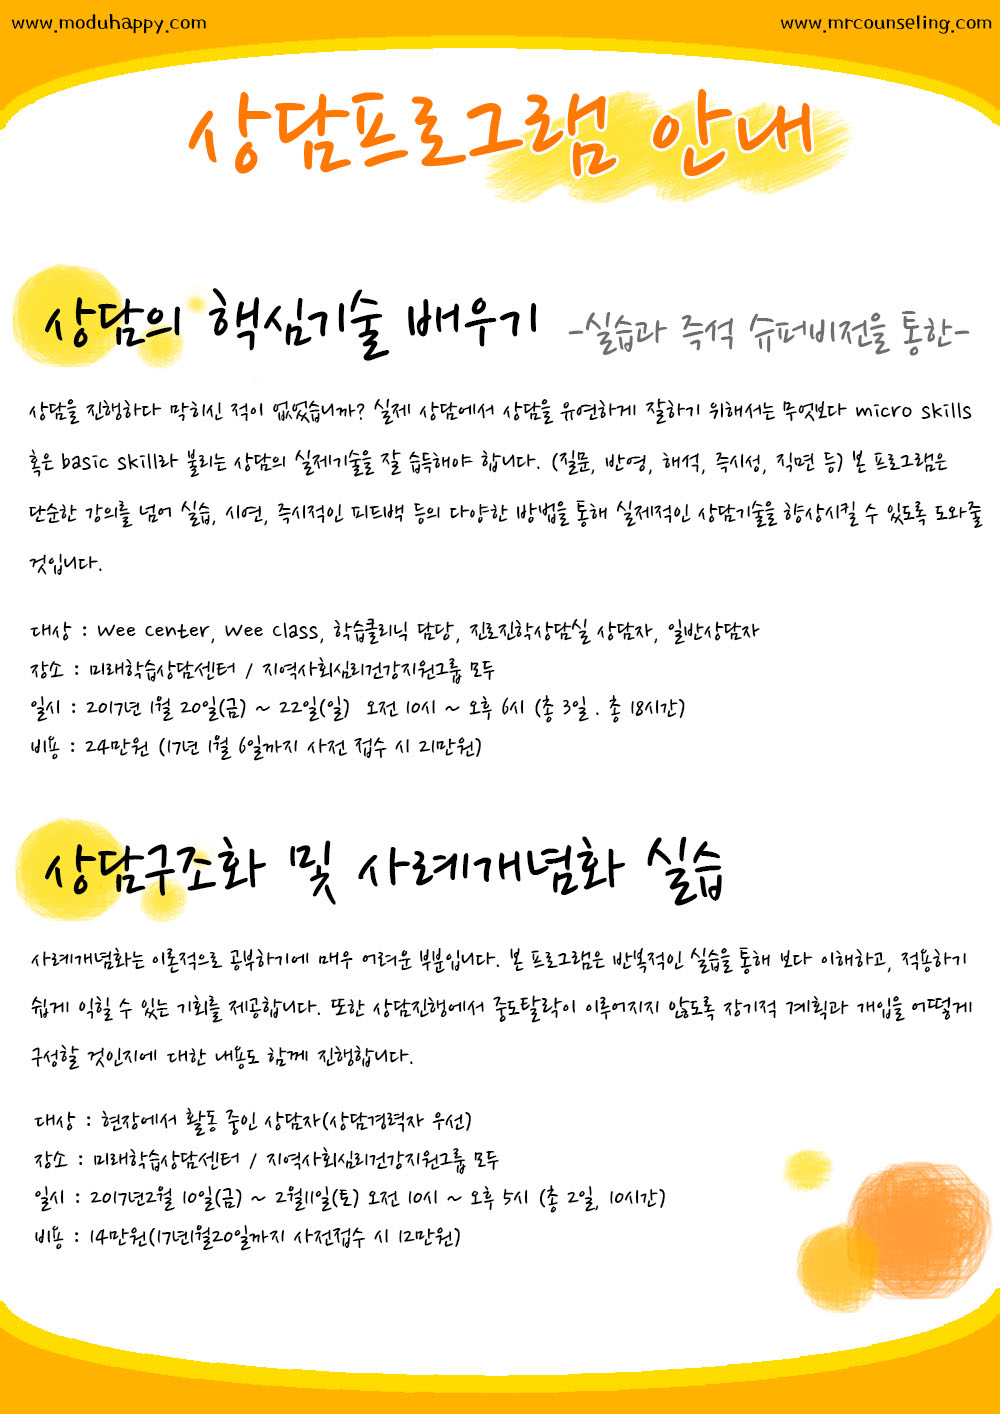 www.moduhappy.com
www.mrcounseling.com
상담프로그램 안내
상담의 핵심기술 배우기 -실습과 즉석 슈퍼비전을 통한-
상담을 진행하다 막히신 적이 없었습니까? 실제 상담에서 상담을 유연하게 잘하기 위해서는 무엇보다 micro skills
혹은 basic skill라 불리는 상담의 실제기술을 잘 습득해야 합니다. (질문, 반영, 해석, 즉시성, 직면 등) 본 프로그램은
단순한 강의를 넘어 실습, 시연, 즉시적인 피드백 등의 다양한 방법을 통해 실제적인 상담기술을 향상시킬 수 있도록 도와줄
것입니다.
대상 : wee center, wee class, 학습클리닉 담당, 진로진학상담실 상담자, 일반상담자
장소 : 미래학습상담센터 / 지역사회심리건강지원그룹 모두
일시 : 2017년 1월 20일(금) ~ 22일(일) 오전 10시 ~ 오후 6시 (총 3일 . 총 18시간)
비용 : 24만원 (17년 1월 6일까지 사전 접수 시 21만원)
상담구조화 및 사례개념화 실습
사례개념화는 이론적으로 공부하기에 매우 어려운 부분입니다. 본 프로그램은 반복적인 실습을 통해 보다 이해하고, 적용하기
쉽게 익힐 수 있는 기회를 제공합니다. 또한 상담진행에서 중도탈락이 이루어지지 않도록 장기적 계획과 개입을 어떻게
구성할 것인지에 대한 내용도 함께 진행합니다.
대상 : 현장에서 활동 중인 상담자(상담경력자 우선)
장소 : 미래학습상담센터 / 지역사회심리건강지원그룹 모두
일시 : 2017년2월 10일(금) ~ 2월11일(토) 오전 10시 ~ 오후 5시 (총 2일, 10시간)
비용 : 14만원(17년1월20일까지 사전접수 시 12만원)